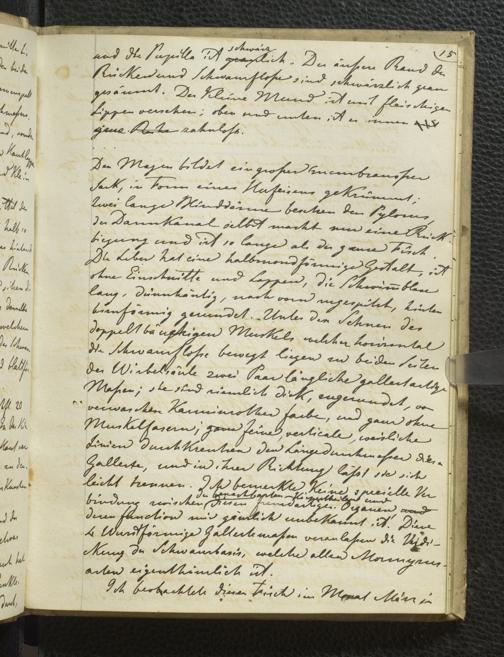 15
und die Pupille ist schwärzlich. Der äußere Rand der
Rücken und Schwanzflosse sind schwärzlich grau
gesäumt. Der kleine Mund ist mit fleischigen
Lippen versehen; oben und unten ist er immer
ganz zahnlos.
Der Magen bildet ein großer membranoser
Sack, in Form eines Hufeisens gekrümmt;
zwei lange Blinddärme besetzen den Pylorus,
der Darmkanal selbst macht nur eine Rück-
biegung und ist so lange als der ganze Fisch.
Die Leber hat eine halbmondförmige Gestalt, ist
ohne Einschnitte und Lappen, die Schwimmblase
lang, dünnhäutig, nach vorn zugespitzt, hinten
birnförmig gerundet. Unter den Sehnen des
doppeltbäuchigen Muskels, welcher horizontal
die Schwanzflosse bewegt liegen zu beiden Seiten
der Wirbelsäule zwei Paar längliche gallertartige
Massen; sie sind ziemlich dick, zugerundet, von
verwaschen Karminrother Farbe, und ganz ohne
Muskelfasern; ganz feine, verticale, weißliche
Linien durchkreutzen den Längendurchmesser dieser
Gallerte, und in ihrer Richtung läßt sie sich
leicht trennen. Ich bemerkte keine specielle Ver-
bindung zwischen diesen Organen und
deren Function mir gänzlich unbekannt ist. Diese
4 Wurstförmige Gallertmassen veranlassen die Verdi-
ckung der Schwanzbasis, welche allen Mormyrus-
arten eigenthümlich ist.
Ich beobachtete diesen Fisch im Monat März in